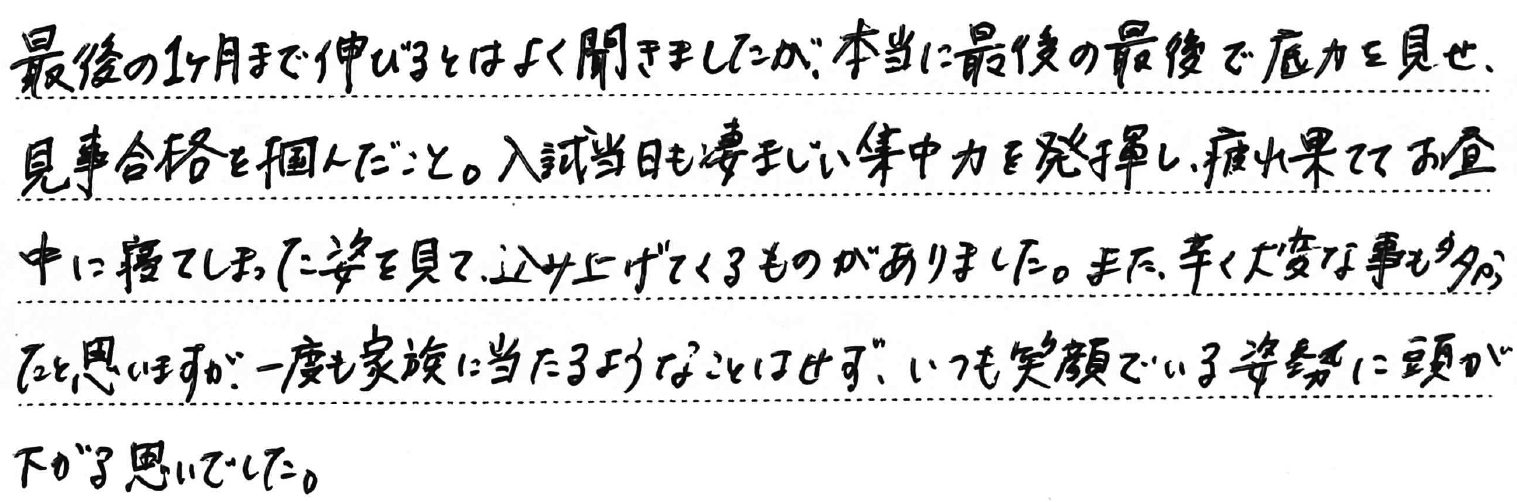 最後の1ヶ月まで伸びるとはよく聞きましたが、本当に最後の最後で底力を見せ、
見事合格を掴んだこと。入試当日も凄まじい集中力を発揮し、疲れ果ててお昼
中に寝てしまった姿を見て、込み上げてくるものがありました。また、辛く大変な事も多かっ
たと思いますが、一度も家族に当たるようなことはせず、いつも笑顔でいる姿勢に頭が
下がる思いでした。